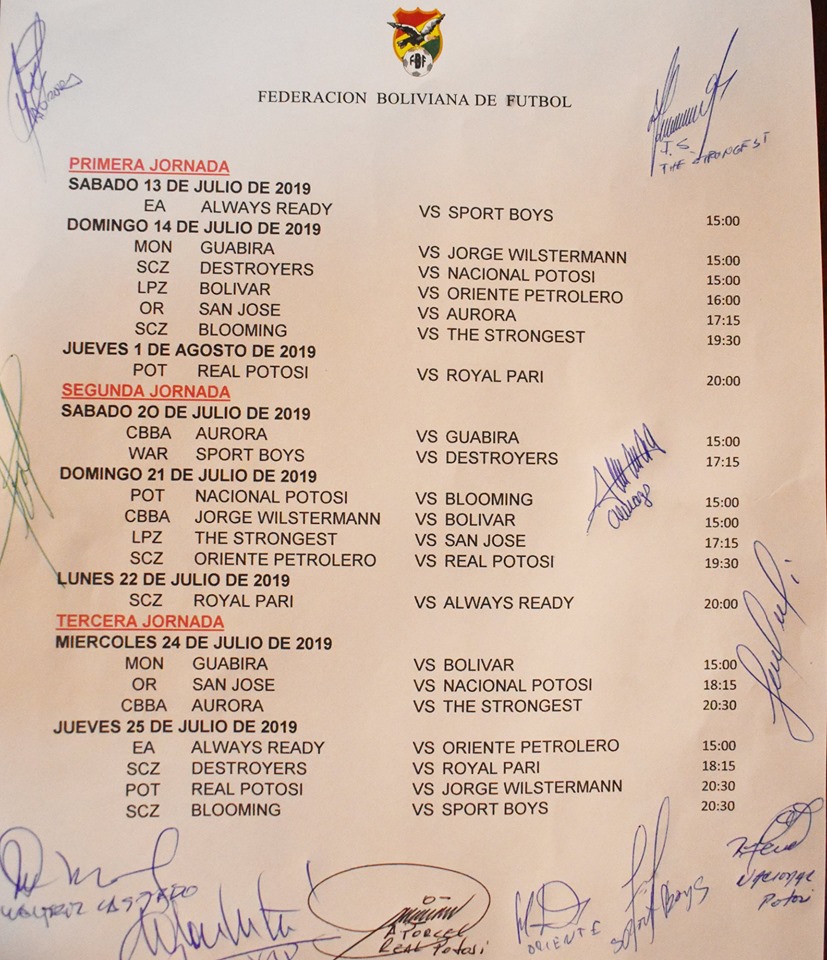 FBF
FEDERACION BOLIVIANA DE FUTBOL
AURORA
T.S.
THE STRONGEST
PRIMERA JORNADA
SABADO 13 DE JULIO DE 2019
EA ALWAYS READY VS SPORT BOYS 15:00
DOMINGO 14 DE JULIO DE 2019
MON GUABIRA VS JORGE WILSTERMANN 15:00
SCZ DESTROYERS VS NACIONAL POTOSI 15:00
LPZ BOLIVAR VS ORIENTE PETROLERO 16:00
OR SAN JOSE VS AURORA 17:15
SCZ BLOOMING VS THE STRONGEST 19:30
JUEVES 1 DE AGOSTO DE 2019
POT REAL POTOSI VS ROYAL PARI 20:00
SEGUNDA JORNADA
SABADO 2O DE JULIO DE 2019
CBBA AURORA VS GUABIRA 15:00
WAR SPORT BOYS VS DESTROYERS 17:15
DOMINGO 21 DE JULIO DE 2019
POT NACIONAL POTOSI VS BLOOMING 15:00
CBBA JORGE WILSTERMANN VS BOLIVAR 15:00
LPZ THE STRONGEST VS SAN JOSE 17:15
SCZ ORIENTE PETROLERO VS REAL POTOSI 19:30
LUNES 22 DE JULIO DE 2019
SCZ ROYAL PARI VS ALWAYS READY 20:00
TERCERA JORNADA
MIERCOLES 24 DE JULIO DE 2019
MON GUABIRA VS BOLIVAR 15:00
OR SAN JOSE VS NACIONAL POTOSI 18:15
CBBA AURORA VS THE STRONGEST 20:30
JUEVES 25 DE JULIO DE 2019
EA ALWAYS READY VS ORIENTE PETROLERO 15:00
SCZ DESTROYERS VS ROYAL PARI 18:15
POT REAL POTOSI VS JORGE WILSTERMANN 20:30
SCZ BLOOMING VS SPORT BOYS 20:30
CASTEDO
REAL POTOSI
ORIENTE
SPORT BOYS
Nacional
Potosi